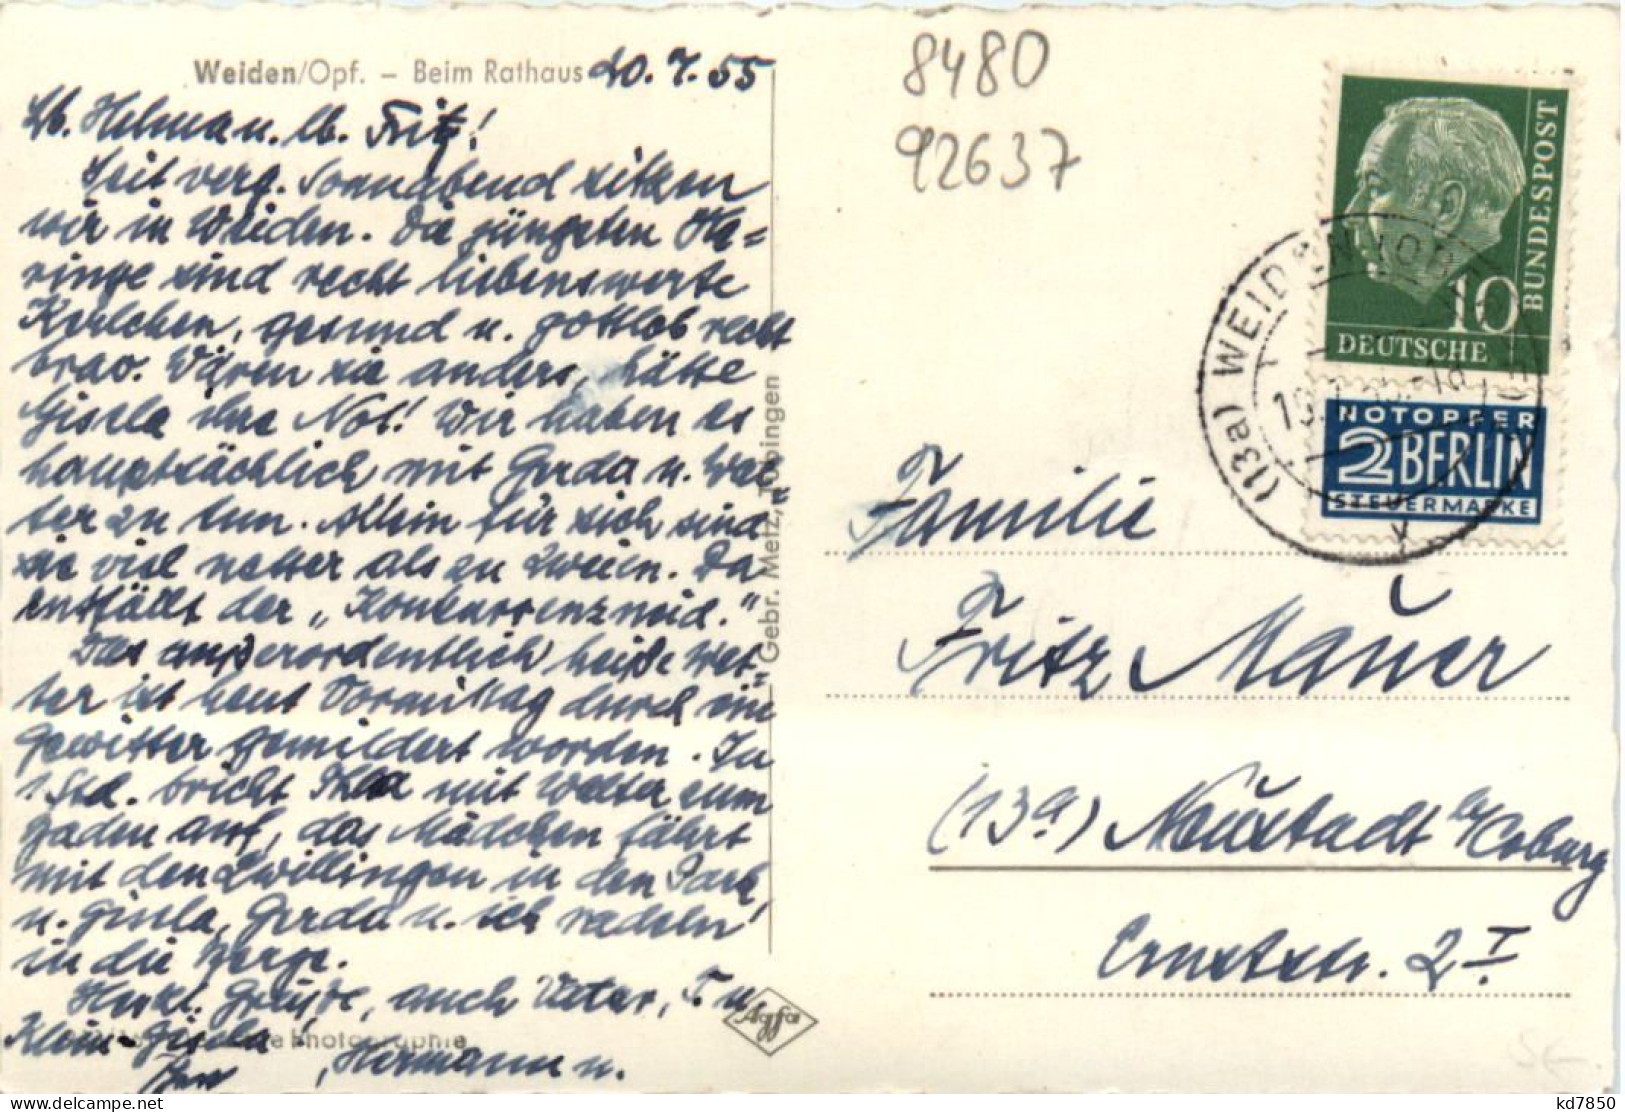 Weiden/Opf. – Beim Rathaus 20.7.55
Lb. Helma u. lb. Fritz!
Seit verg. Sonnabend sitzen
wir in Weiden. Die jüngsten Ha=
ringe sind recht liebenswerte
Kerlchen, gesund u. gottlob recht
brav. Wären sie anders, hätte
Gisela ihre Not! Wir haben es
hauptsächlich mit Gerda u. Wal„
ter zu tun. Allein für sich sind
sie viel netter als zu Zweien. Da
entfällt der „Konkurrenzneid."
Das außerordentlich heiße Wet„
ter ist heut Vormittag durch ein
Gewitter gemildert worden. In
1 Std. bricht mit Walter zum
Baden auf, das Mädchen fährt
mit den Zwillingen in den Park
u. Gisela, Gerda u. ich radeln
in die Berge.
Herzl. Grüße, auch Vater, T. u.
Klein-Gisela
Hermann u.
Gebr. Metz, Tübingen
Agfa
8480
92637
DEUTSCHE
BUNDESPOST
10
NOTOPFER
2 BERLIN
STEUERMARKE
(13a) WEIDEN
Familie
Fritz Mauer
(13a) Neustadt b/Coburg
Ernststr. 2 I
kd7850